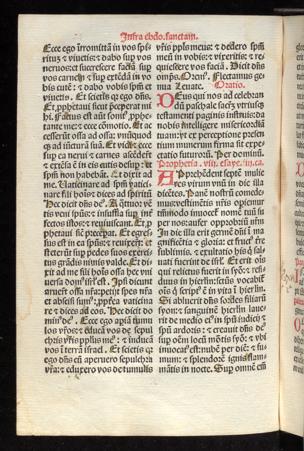 Infra ebdo. sanctam.
Ecce ego ĩtromittã in vos spi-
ritũ ⁊ viuetis: ⁊ dabo sup vos
neruos: ⁊ succrescere faciã sup
vos carnes: ⁊ sup extẽdã in vo
bis cutẽ: ⁊ dabo vobis spm̃ et
viuetis. Et scietis qꝛ ego dñs.
Et ꝓphetaui sicut preceperat
mihi
tante me: ⁊ ecce cõmotio. Et ac
cesserũt ossa ad ossa: vnũquodq̃
ad iũcturã suã. Et vidi: ⁊ ecce
sup ea nerui ⁊ carnes ascẽderũt
⁊ extẽta ẽ in eis cutis desup: ⁊
spm̃ non habebãt. Et dixit ad
me. Vaticinare ad spm̃ vatici-
nare fili hoĩs: ⁊ dices ad spiritũ
Hec dicit dñs
tis veni spũs: ⁊ insuffla sup
fectos istos: ⁊ reuiuiscant. Et ꝓ
phetaui sic preceperat. Et ingres
sus est in ea spũs: ⁊ vixerũt: et
steterũt sup pedes suos exerci-
tus grãdis nimis valde. Et di-
xit ad me fili hoĩs ossa hec vni
uersa dom⁹ isrl̃ est. Ipsi dicunt
aruerũt ossa nr̃a: perijt spes nr̃a
et abscisi sum⁹: ꝓpterea vaticina
re ⁊ dices ad eos. Hec dicit do
min⁹ Ecce ego apiã tumu
los vr̃os: ⁊ educã vos de sepul
chris vr̃is pplus me⁹: ⁊ inducã
vos ĩ terrã israel. Et scietis qꝛ
ego dñs cũ aperuero sepulchra
vr̃a: ⁊ eduxero vos de tumulis
vr̃is pplus meus: ⁊ dedero spm̃
meũ in vobis: ⁊ vixeritis: ⁊ re-
quiescere vos faciã. Dicit dñs
omp̃s. Orem⁹. Flectamus ge-
nua Leuate. Oratio.
Deus qui nos ad celebran
dũ paschale sacrm̃ vtriusq̃
testamenti paginis instruis: da
nobis intelligere misericordiã
tuam: vt ex perceptione presen
tium munerum firma sit expe-
ctatio futuroꝝ. Per dominũ.
Prophetia. viij. esaye. iiij. ca.
Apprehẽdent septẽ mulie
res virum vnũ in die illa
dicẽtes. Panẽ nostrũ comede-
mus: vestimẽtis nr̃is opiemur
tm̃modo inuocet᷑ nomẽ tuũ su
per nos: aufer opprobriũ nr̃m
In die illa erit germẽ dñi ĩ ma
gnificẽtia ⁊ gloria: et fruct⁹ tr̃e
sublimis. ⁊ exultatio hijs q̃ sal-
uati fuerint de isrl̃. Et erit oĩs
qui relictus fuerit in syõ: ⁊ resi-
duus in hierl̃m: sctũs vocabit᷑
oĩs q̃ script⁹ ẽ in vita ĩ hierl̃m.
Si abluerit dñs sordes filiarũ
syon: ⁊ sanguinẽ hierl̃m laue-
rit de medio ei⁹ in spũ iudicij ⁊
spũ ardoris: ⁊ creauit dñs sũ
sup oẽm locũ mõtis syõ: ⁊ vbi
inuocat⁹ est: nubẽ per diẽ: ⁊ fu-
mum: ⁊ splendorẽ ignis flam-
mãtis in nocte. Sup omnẽ em̃